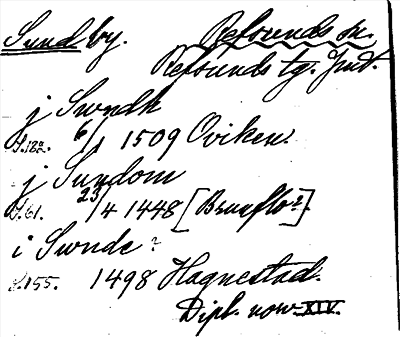 Sund by. Refsunds sn.
Refsunds tg. Jmt.
j Swndh
S.182. 6/1 1509 Oviken.
j Sundom
S.61. 23/4 1448 [Brunflo?].
i Swnde ?
S.155. 1498 Hagnestad.
Dipl. norv. XIV.